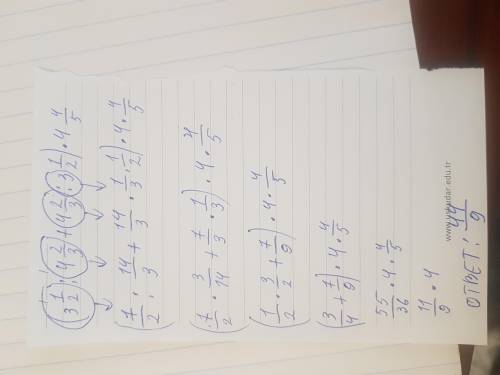 (3 1/2 : 4 2/3 + 4 2/3 : 3 1/2) • 4 4/5
(7/2 : 14/3 + 14/3 • 1/3 • 1/2) • 4 • 4/5
(7/2 • 3/14 + 7/3 • 1/3) • 4 • 4/5
(1/2 • 3/2 + 7/9) • 4 • 4/5
(3/4 + 7/9) • 4 • 4/5
55/36 • 4 • 4/5
11/9 • 4
ОТВЕТ: 44/9
www.uskudar.edu.tr